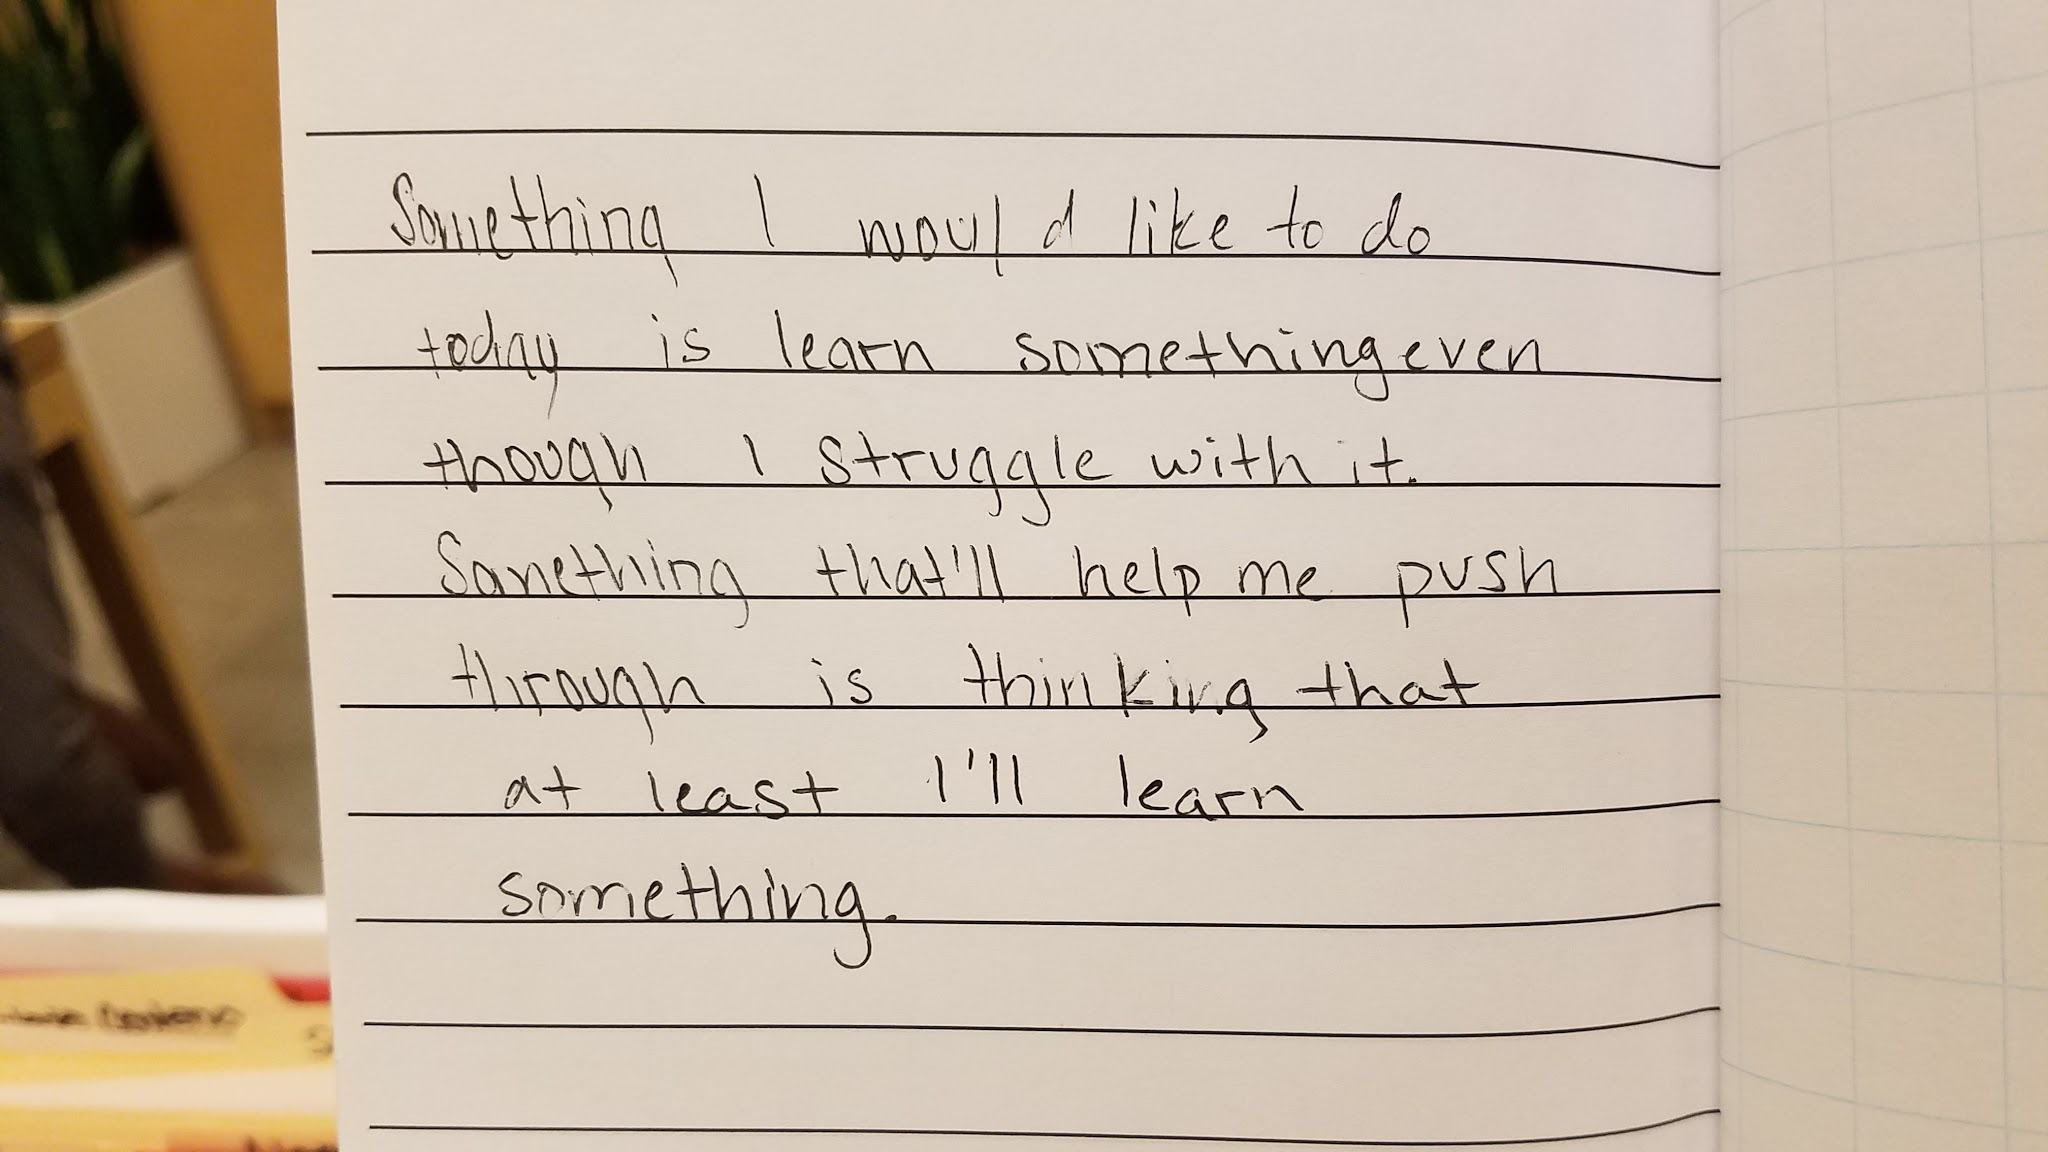 Something I would like to do
today is learn something even
though I struggle with it.
Something that'll help me push
through is thinking that
at least I'll learn
something.